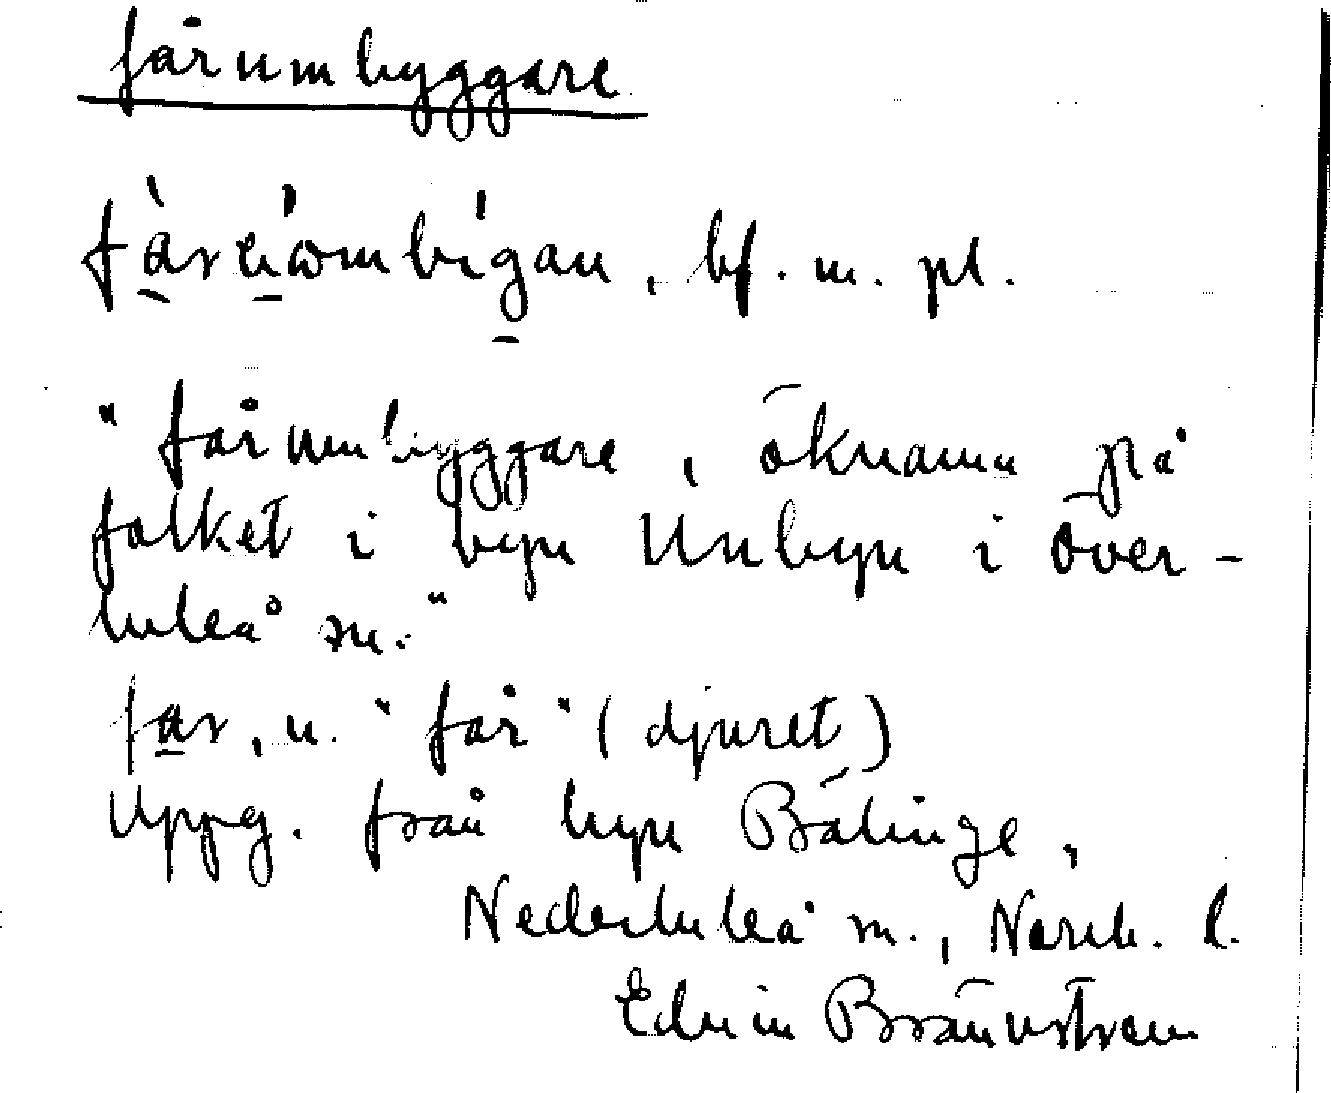 fårumbyggare
bf. m. pl.
"fårumbyggare, öknamn på
folket i byn Unbyn i Över-
luleå sn."
far, n. "får" (djuret)
Uppg. från byn Bälinge,
Nederluleå sn., Norrb. l.
Edvin Brännström